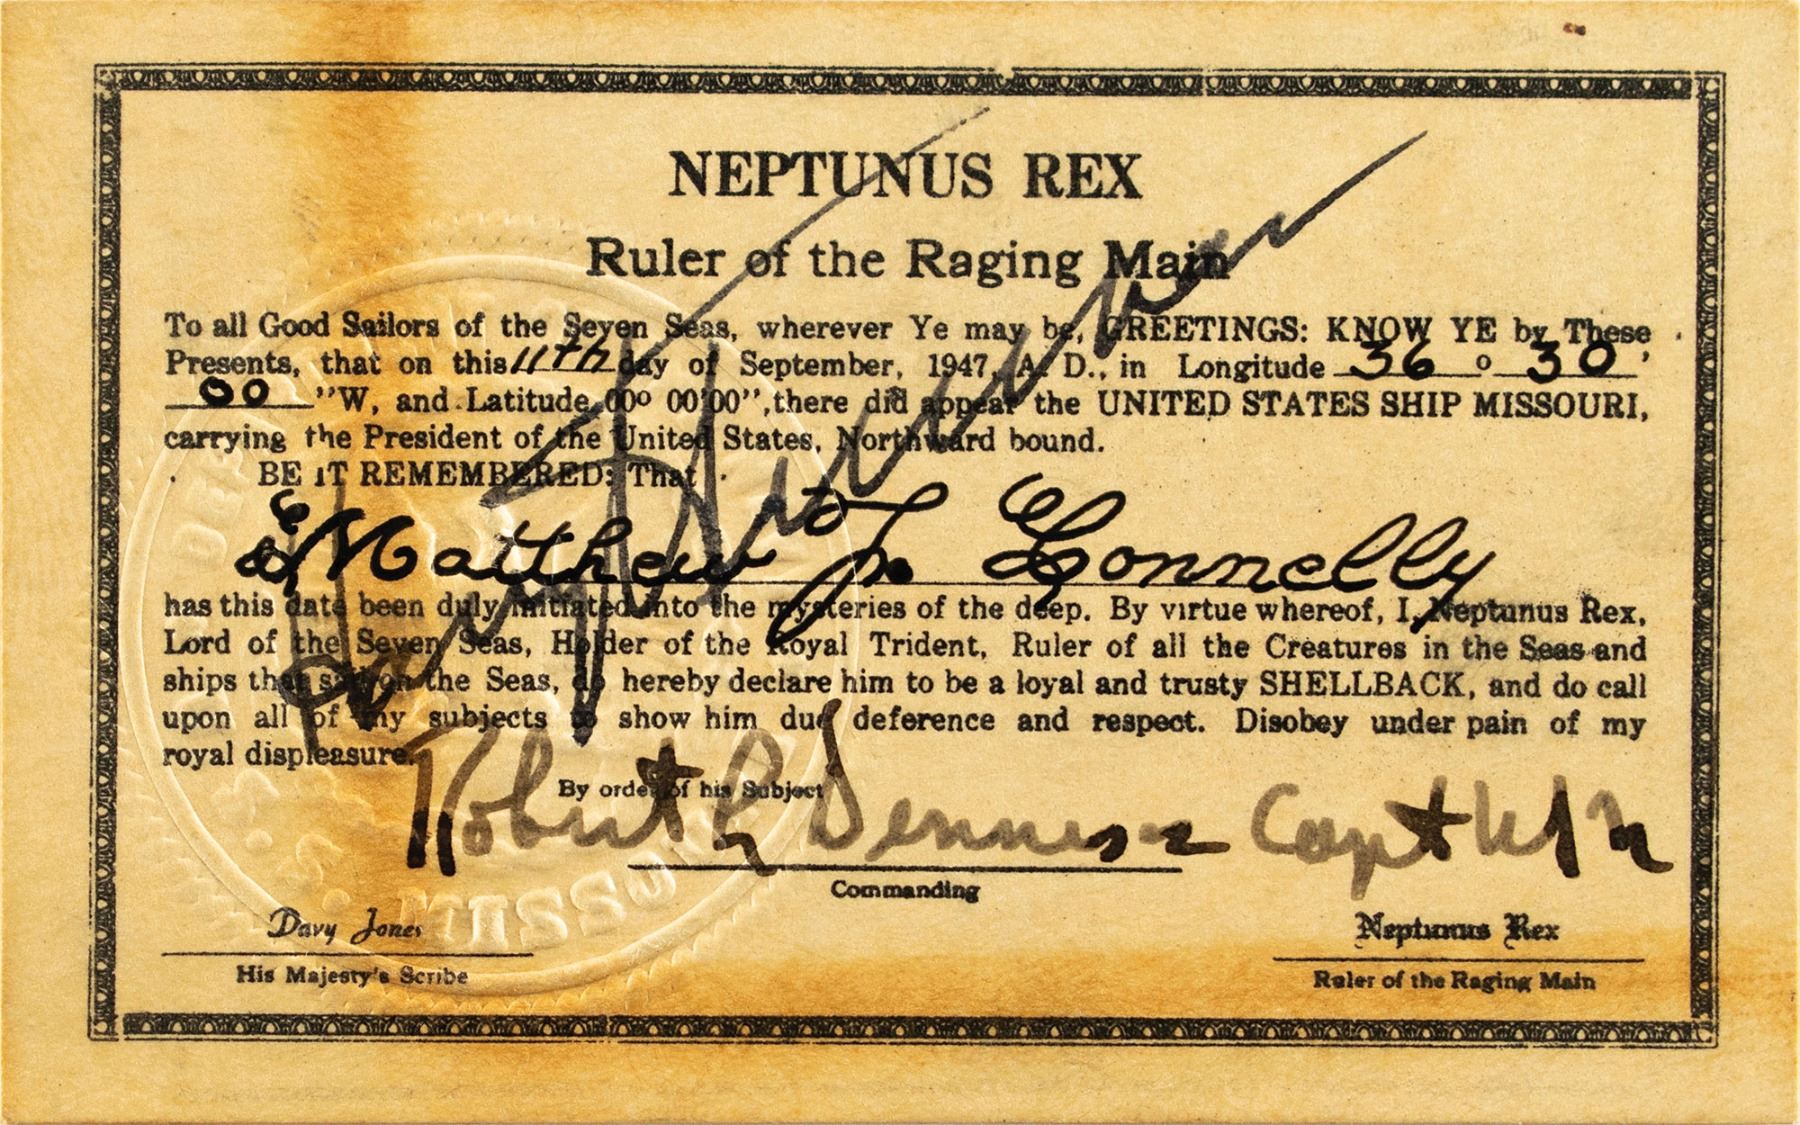 NEPTUNUS REX
Ruler of the Raging Main
To all Good Sailors of the Seven Seas, wherever Ye may be, GREETINGS: KNOW YE by These
Presents, that on this 11th day of September, 1947, A. D., in Longitude 36 o 30 '
00 "W, and Latitude 00o 00'00", there did appear the UNITED STATES SHIP MISSOURI,
carrying the President of the United States, Northward bound.
BE IT REMEMBERED: That
Matthew J. Connelly
has this date been duly initiated into the mysteries of the deep. By virtue whereof, I, Neptunus Rex,
Lord of the Seven Seas, Holder of the Royal Trident, Ruler of all the Creatures in the Seas and
ships that sail on the Seas, do hereby declare him to be a loyal and trusty SHELLBACK, and do call
upon all of my subjects to show him due deference and respect. Disobey under pain of my
royal displeasure.
Harry Truman
By order of his Subject
Robert L Dennison Capt USN
Commanding
Davy Jones
His Majesty's Scribe
Neptunus Rex
Ruler of the Raging Main
U.S.S. MISSOURI